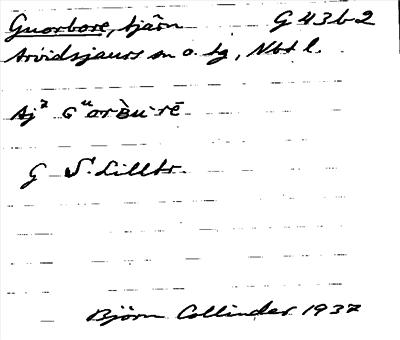 Guorbare, tjärn G 43 b 2
Arvidsjaurs sn o. tg, Nbt l.
Aj² Gᵘorʙu·rē
G S. Lilltr.
Björn Collinder 1937